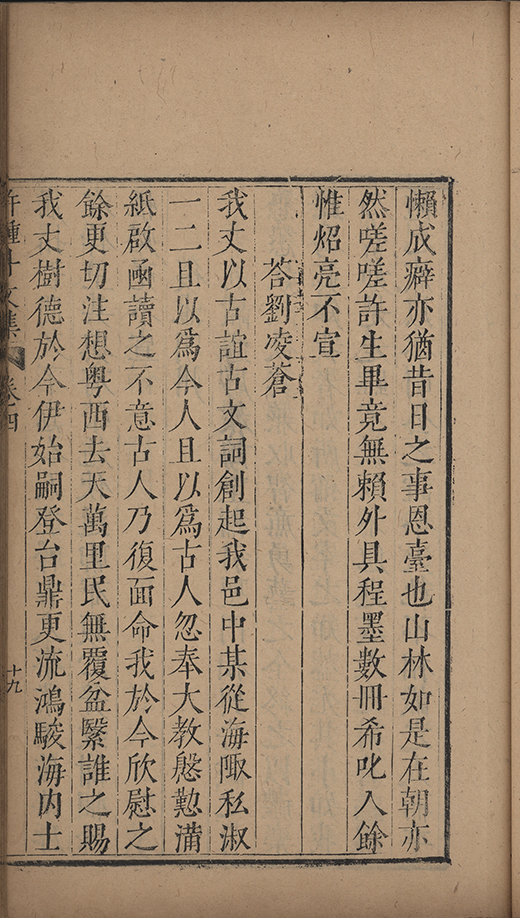 懶成癖亦猶昔日之事恩臺也山林如是在朝亦
然嗟嗟許生畢竟無賴外具程墨數冊希叱入餘
惟炤亮不宣
荅劉凌蒼
我丈以古誼古文詞創起我邑中某從海陬私淑
一二且以爲今人且以爲古人忽奉大教慇懃滿
紙啟函讀之不意古人乃復面命我於今欣慰之
餘更切注想粵西去天萬里民無覆盆繄誰之賜
我丈樹德於今伊始嗣登台鼎更流鴻駿海内士
許鍾斗文集 卷四 十九